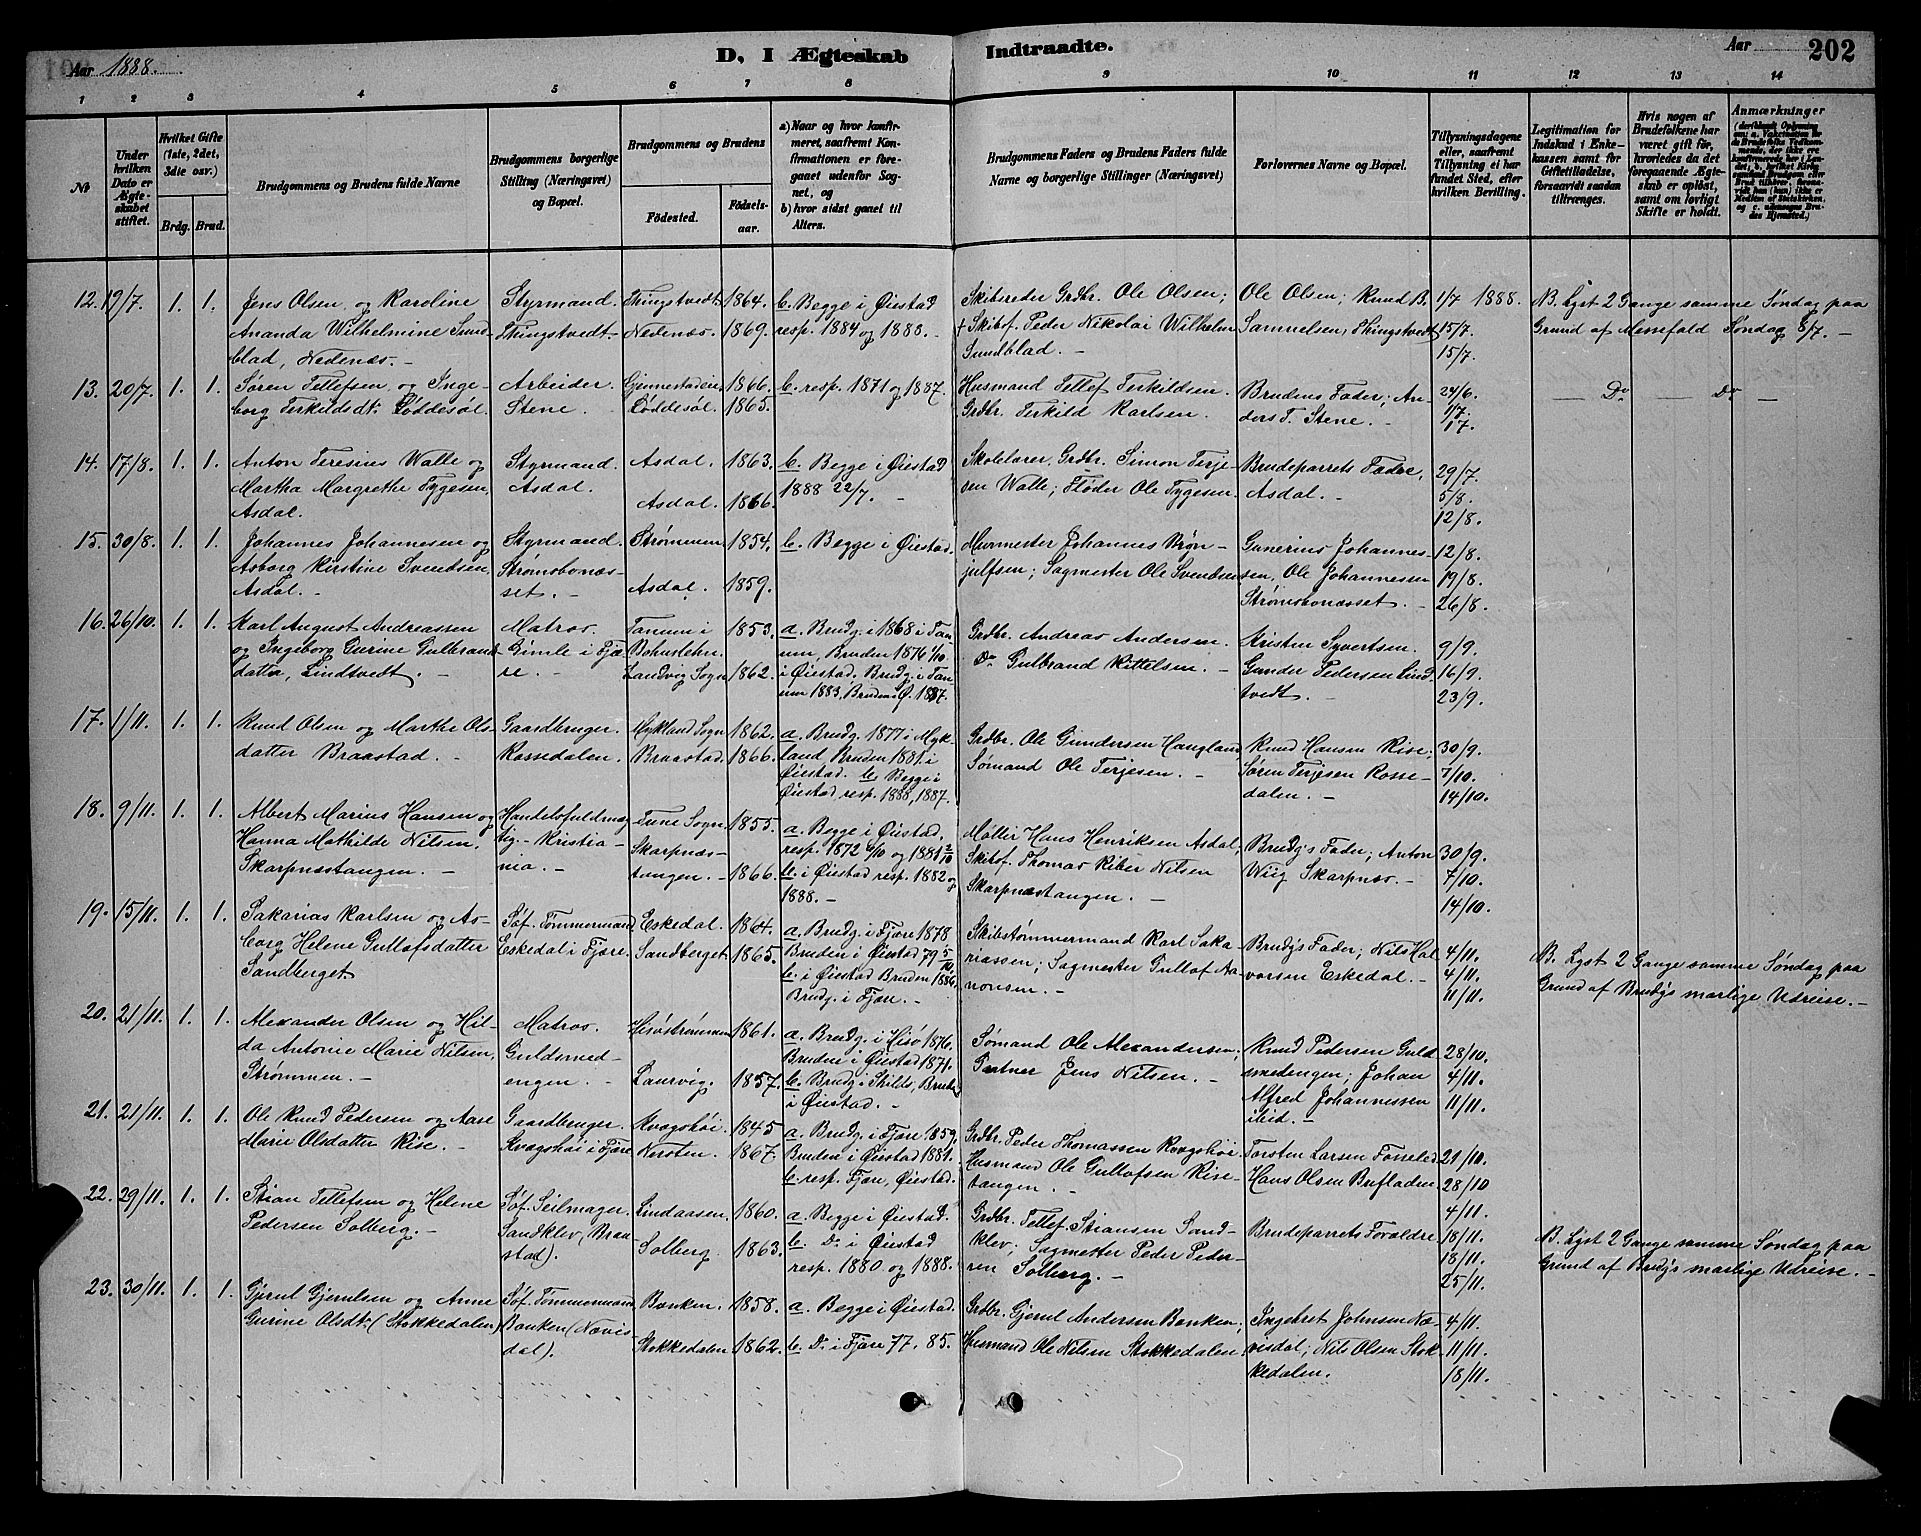 Aar 1888.
D, I Ægteskab
Indtraadte.
Aar
202
1 2 3 4 5 6 7 8 9 10 11 12 13 14
No
Under hvilken Dato er Ægteskabet stiftet.
Hvilket Gifte (1ste, 2det, 3die osv.)
Brdg. Brud.
Brudgommens og Brudens fulde Navne
Brudgommens borgerlige Stilling (Næringsvei) og Bopæl.
Brudgommens og Brudens
Födested.
Födsels-aar.
a) Naar og hvor konfirmeret, saafremt Konfirmationen er foregaaet udenfor Sognet, og
b) hvor sidst gaaet til Alters.
Brudgommens Faders og Brudens Faders fulde Navne og borgerlige Stillinger (Næringsvei)
Forlovernes Navne og Bopæl.
Tillysningsdagene eller, saafremt Tillysning ei har fundet Sted, efter hvilken Bevilling.
Legitimation for Indskud i Enkekassen samt for Giftetilladelse, forsaavidt saadan tiltrænges.
Hvis nogen af Brudefolkene har været gift för, hvorledes da det foregaaende Ægteskab er oplöst, samt om lovligt Skifte er holdt.
Anmærkninger
12. 19/7 1. 1. Jens Olsen og Karoline Styrmand. Thingstvedt. 1864. b. Begge i Øiestad Skibsreder Grdbr. Ole Olsen; Ole Olsen; Knud B. 1/7 1888. NB. Lyst 2 Gange samme Søndag paa
Ananda Wilhelmine Sund- Thingstvedt. Nedenæs. 1869. resp. 1884 og 1888. - + Skibsf. Peder Nikolai Wilhelm Samuelsen, Thingstvedt 15/7. Grund af Messefald Søndag 8/7. -
blad, Nedenæs. - Sundblad. - 15/7.
13. 20/7. 1. 1. Søren Tellefsen og Inge- Arbeider. 1866. b. resp. 1871 og 1887. Husmand Tellef Terkildsen. Brudens Fader; An- 24/6. - Do - Do -
borg Terkildsdt. Løddesøl. Stene. Løddesøl. 1865. Grdbr. Terkild Karlsen. ders T. Stene. - 1/7.
1/7.
14. 17/8. 1. 1. Anton Teresius Walle og Styrmand. Asdal. 1863. b. Begge i Øiestad Skolelærer, Grdbr. Simon Terje- Brudeparrets Fædre, 29/7.
Martha Margrethe Tygesen, Asdal. Asdal. 1866. 1888 22/7. - sen Walle; Fløder Ole Tygesen. Asdal. - 5/8.
Asdal. 12/8.
15. 30/8. 1. 1. Johannes Johannesen og Styrmand. Strømmen. 1854. b. Begge i Øiestad. Murmester Johannes Brøn- Gunerius Johannes- 12/8.
Asborg Kirstine Svendsen, Strømsbonæs- Asdal. 1859. julfsen; Sagmester Ole Svendsen. sen, Ole Johannessen 19/8.
Asdal. - set. - Strømsbonæsset. - 26/8.
16. 26/10. 1. 1. Karl August Andreassen Matros. Tanum i 1853. a. Brudg. i 1868 i Tan- Grdbr. Andreas Andersen. Kristen Syvertsen. 9/9.
og Ingeborg Gurine Gulbrands- Gimle i Fjæ- Bohuslehn. um, Bruden 1876 1/10 Do Gulbrand Kittelsen. - Gunder Pedersen Lind- 16/9.
datter, Lindtvedt. - re. - Landvig Sogn 1862. i Øiestad. Brudg. i Tan- tvedt. - 23/9.
um 1883, Bruden i Ø. 1887.
17. 1/11. 1. 1. Knud Olsen og Marthe Ols- Gaardbruger. Mykland Sogn 1862. a. Brudg. 1877 i Myk- Grdbr. Ole Gundersen Haugland, Knud Hansen Rise; 30/9.
datter Braastad. - Rossedalen. Braastad. 1866. land, Bruden 1881 i Sømand Ole Terjesen. - Søren Terjesen Rosse- 7/10.
Øiestad. b. Begge i dalen. - 14/10.
Øiestad resp. 1888, 1887.
18. 9/11. 1. 1. Albert Marius Hansen og Handelsfuldmæg- Tune Sogn. 1855. a. Begge i Øiestad. Møller Hans Henriksen Asdal; Brudg's Fader; Anton 30/9.
Hanna Mathilde Nilsen, tig. - Kristia- Skarpnæs- resp. 1872 6/10 og 1881 2/10 Skibsf. Thomas Riber Nilsen Wiig Skarpnæs. - 7/10.
Skarpnæstangen. - nia. - tangen. - 1866. b. i Øiestad resp. 1882 og Skarpnæstangen. - 14/10.
1888. -
19. 15/11. 1. 1. Sakarias Karlsen og As- Søf. Tømmermand Eskedal. 1864. a. Brudg. i Fjære 1878 Skibstømmermand Karl Saka- Brudg's Fader; Nils Hal- 4/11.
borg Helene Gullofsdatter Eskedal i Fjære. Sandberget 1865. Bruden i Øiestad 79 5/10 riassen; Sagmester Gullof Aa- vorsen Eskedal. - 4/11. NB. Lyst 2 Gange samme Søndag paa
Sandberget b. i Øiestad Bruden 1886, nonsen. - 11/11. Grund af Brudg's snarlige Udreise. -
Brudg. i Fjære. -
20. 21/11. 1. 1. Alexander Olsen og Hil- Matros. Hisøstrømmen 1861. a. Brudg. i Hisø 1876, Sømand Ole Alexandersen; Knud Pedersen Guld- 28/10.
da Antonie Marie Nilsen, Guldsmed- Bruden i Øiestad 1871. Gartner Jens Nilsen. - smedengen; Johan 4/11.
Strømmen. - engen. - Laurvig. 1857. b. Brudg. i Skilsø, Bruden Alfred Johannessen 11/11.
i Øiestad. - ibid. -
21. 21/11. 1. 1. Ole Knud Pedersen og Aase Gaardbruger. Kvagshøi. 1845 a. Brudg. i Fjære 1859. Grdbr. Peder Thomassen Kvagshøi Torsten Larsen 21/10.
Marie Olsdatter Rise. - Kvagshøi i Fjære Nersten. 1867. Bruden i Øiestad 1881. Husmand Ole Gullofsen Rise- Hans Olsen Bufladen. 28/10
b. resp. Fjære, Øiestad. tangen. - 4/11.
22. 29/11. 1. 1. Stian Tellefsen og Helene Søf. Seilmager. Lindaasen. 1860. a. Begge i Øiestad. Grdbr. Tellef Stiansen Sand- Brudeparrets Forældre 18/11. NB. Lyst 2 Gange samme Søndag paa
Pedersen Solberg. - Sandklev (Braa- Solberg. 1863. b. Do i Øiestad klev; Sagmester Peder Peder- 18/11. Grund af Brudg's snarlige Udreise. -
stad). resp. 1880 og 1888. sen Solberg. - 25/11.
23. 30/11. 1. 1. Gjerul Gjerulsen og Anne Søf. Tømmermand Banken. 1858. a. Begge i Øiestad. Grdbr. Gjerul Andersen Banken; Ingebret Johnsen Næ- 4/11.
Gurine Olsdt. (Stokkedalen) Banken (Nævis- Stokkedalen 1862. b. Do i Fjære 77. 85. Husmand Ole Nilsen Stokkedalen. visdal; Nils Olsen Stok- 11/11.
dal). kedalen. 18/11.